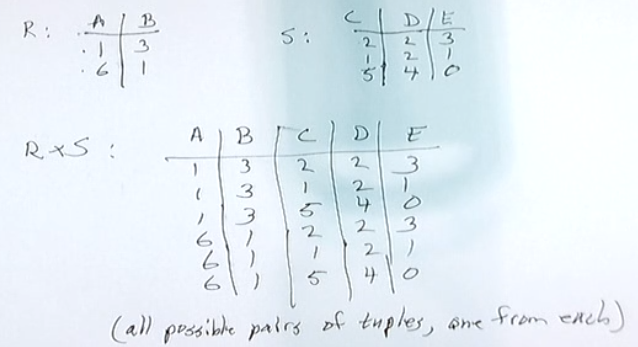 R: A B
1 3
6 1
S: C D E
2 2 3
1 2 1
5 4 0
R×S: A B C D E
1 3 2 2 3
1 3 1 2 1
1 3 5 4 0
6 1 2 2 3
6 1 1 2 1
6 1 5 4 0
(all possible pairs of tuples, one from each)